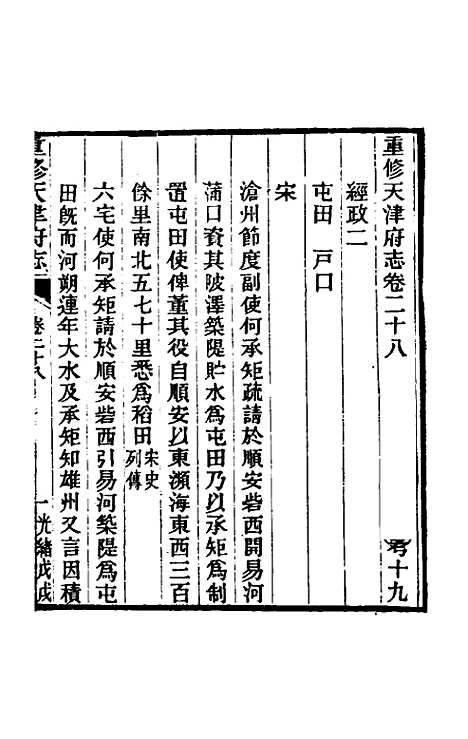 重修天津府志卷二十八 考十九
經政二
屯田 戸口
宋
滄州節度副使何承矩疏請於順安砦西開易河
蒲口資其陂澤築隄貯水爲屯田乃以承矩爲制
置屯田使俾董其役自順安以東瀕海東西三百
餘里南北五七十里悉爲稻田宋史列傳
六宅使何承矩請於順安砦西引易河築隄爲屯
田旣而河朔連年大水及承矩知雄州又言因積
重修天津府志 卷二十八 一 光緒戊戌